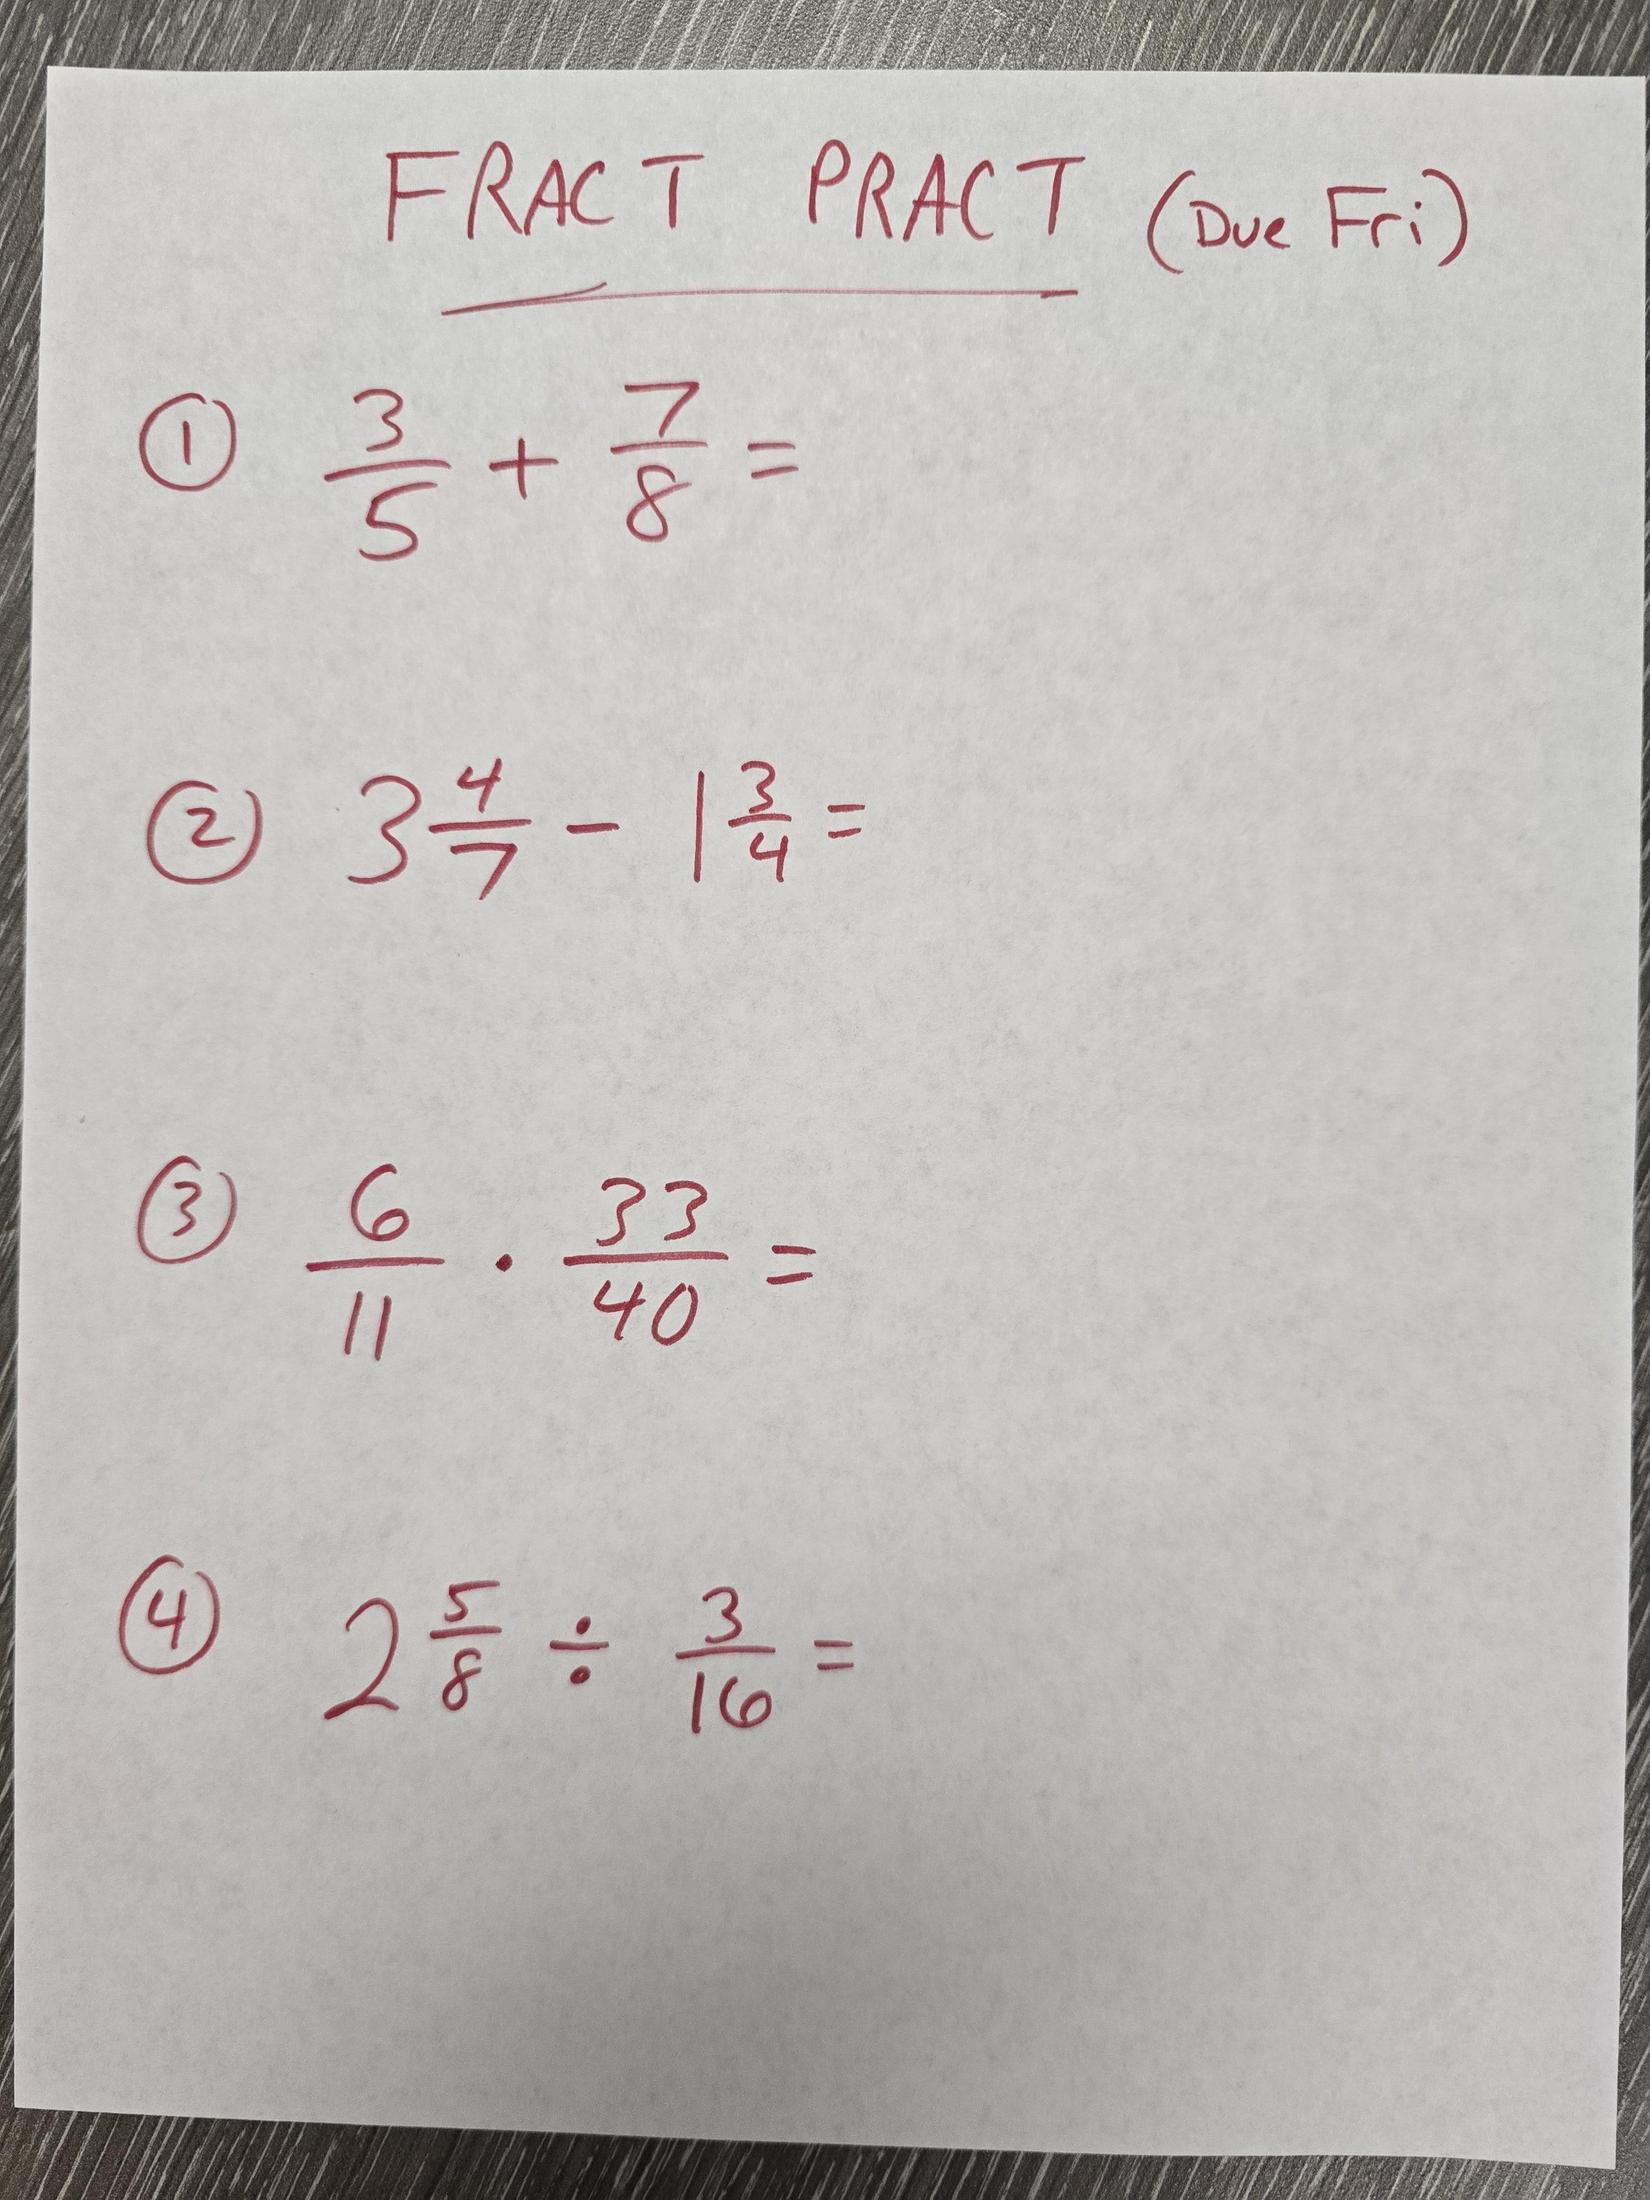 FRACT PRACT (Due Fri)
① 3/5 + 7/8 =
② 3 4/7 - 1 3/4 =
③ 6/11 · 33/40 =
④ 2 5/8 ÷ 3/16 =